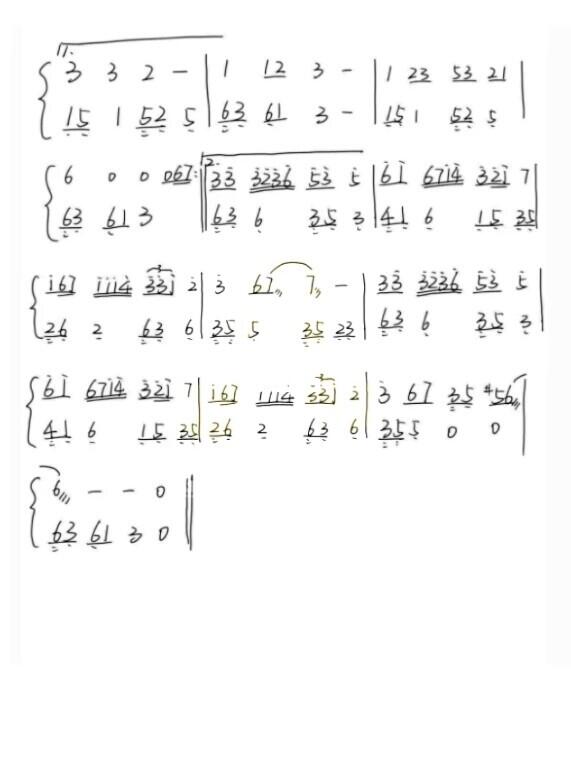 1.
3 3 2 - | 1 12 3 - | 1 23 53 21 |
15 1 52 5 | 63 61 3 - | 15 1 52 5 |
6 0 0 067 :|| 2. 33 3236 53 5 | 61 6714 321 7 |
63 61 3 || 63 6 35 3 | 41 6 15 35 |
3 3
167 1114 331 2 | 3 67 7 - | 33 3236 53 5 |
26 2 63 6 | 35 5 35 23 | 63 6 35 3 |
61 6714 321 7 | 167 1114 331 2 | 3 67 35 #56 |
41 6 15 35 | 26 2 63 6 | 355 0 0 |
6 - - 0 ||
63 61 3 0 ||